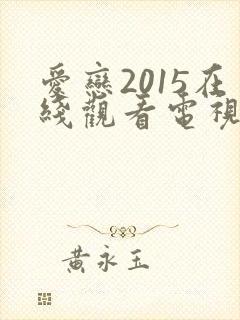 愛戀2015在
綫觀看電視
黃永玉